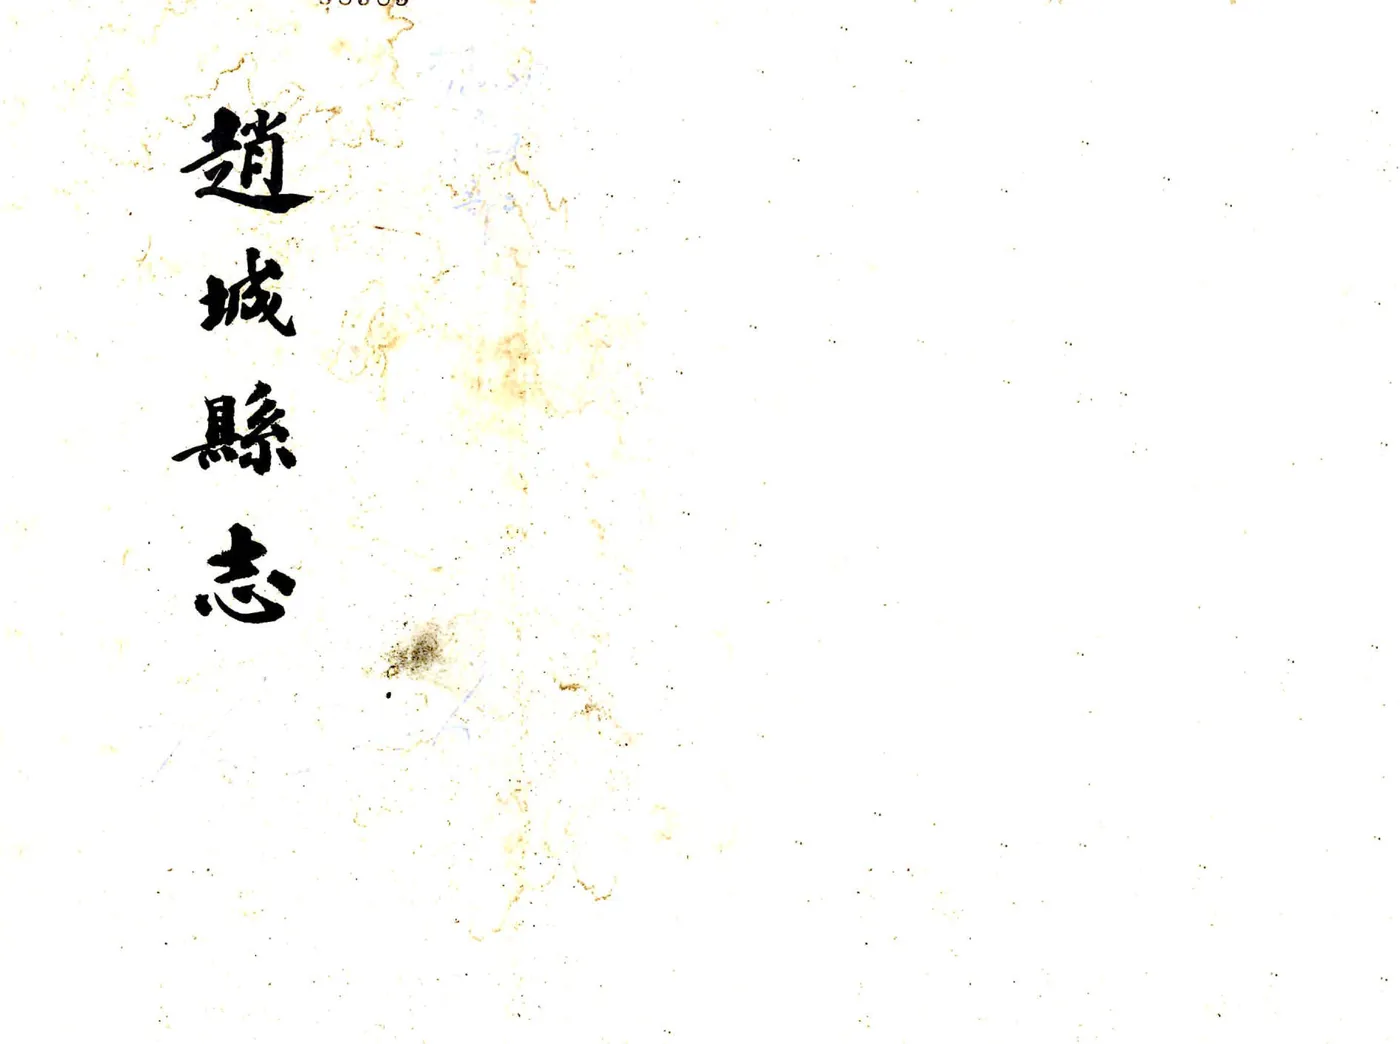 趙城縣志